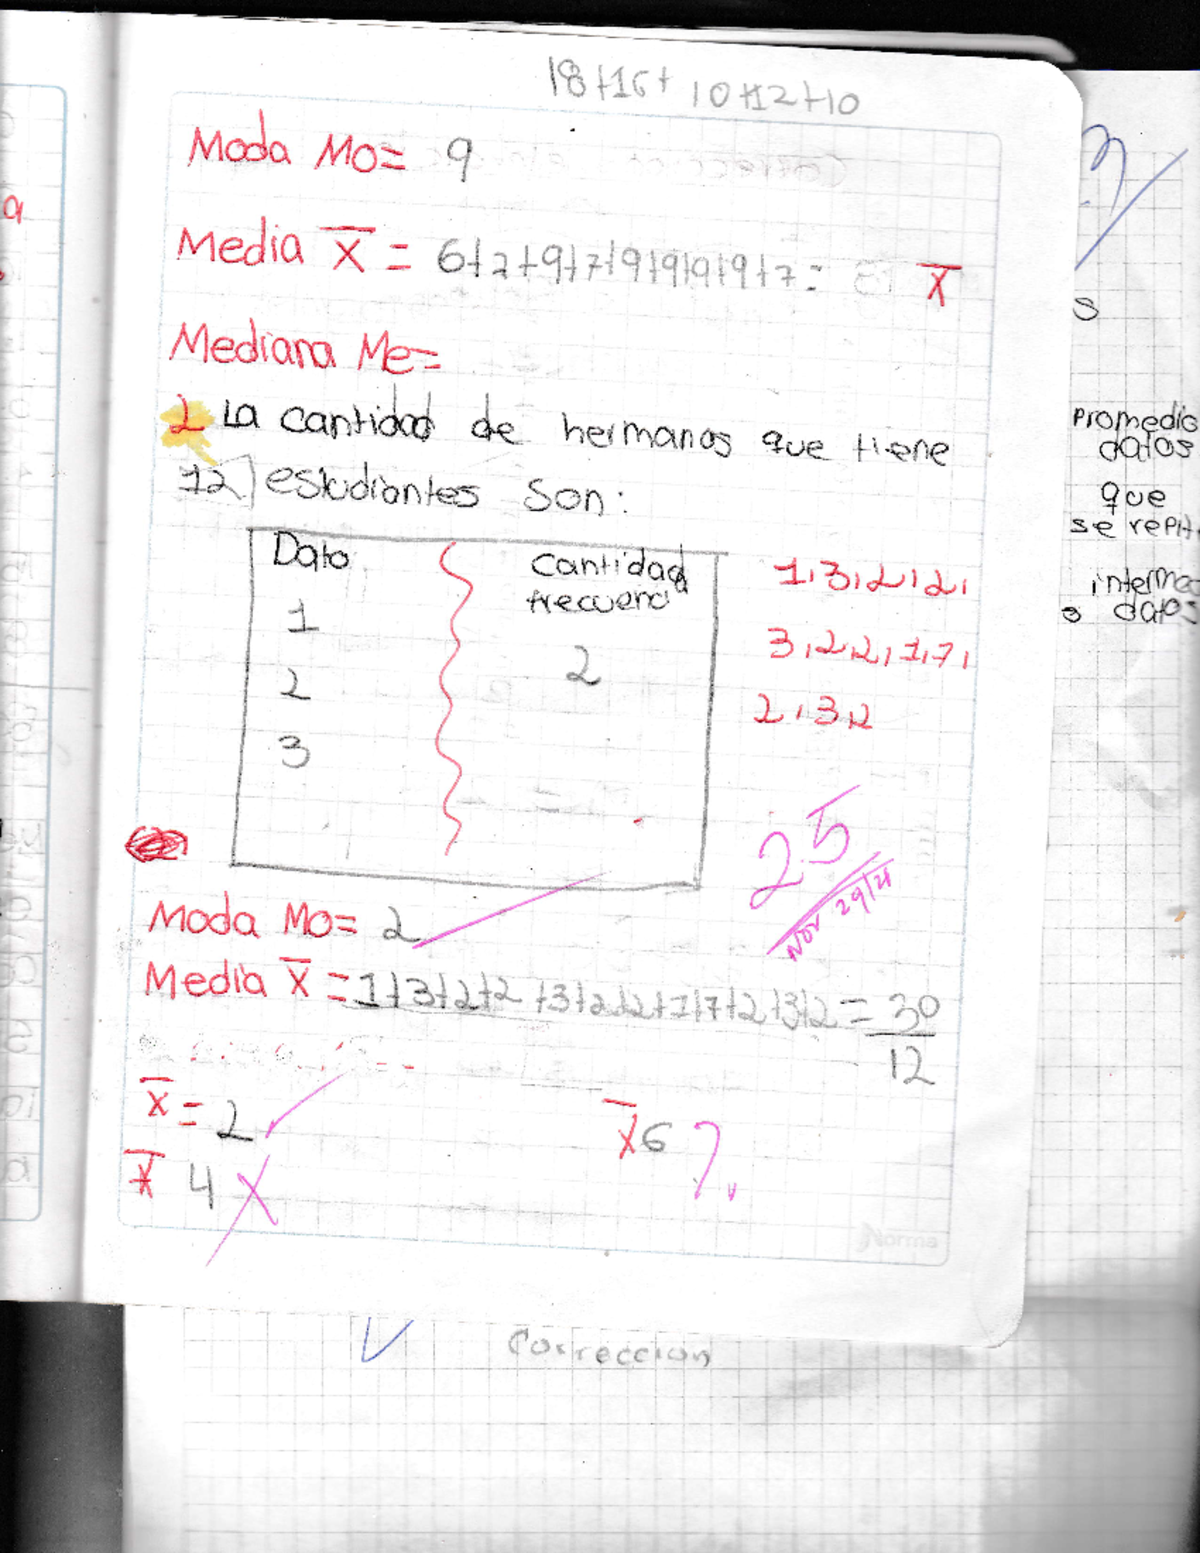 18+16+ 10+12+10
Moda Mo= 9
Media X̅ = 6+2+9+7+9+9+9+9+7= X̅
Mediana Me=
2 La cantidad de hermanos que tiene
12 estudiantes son:
Dato Cantidad frecuenci
1
2 2
3
1,3,2,2,
3,2,2,1,7,
2,3,2
25
Nov 29/21
Moda Mo= 2
Media X̅ = 1+3+2+2+3+2+2+1+7+2+3+2 = 30
12
X̅ = 2
X̅ 6 ?
X̅ 4 X
Norma
Correccion
a
s
Promedio
datos
que
se repit
interme
s datos